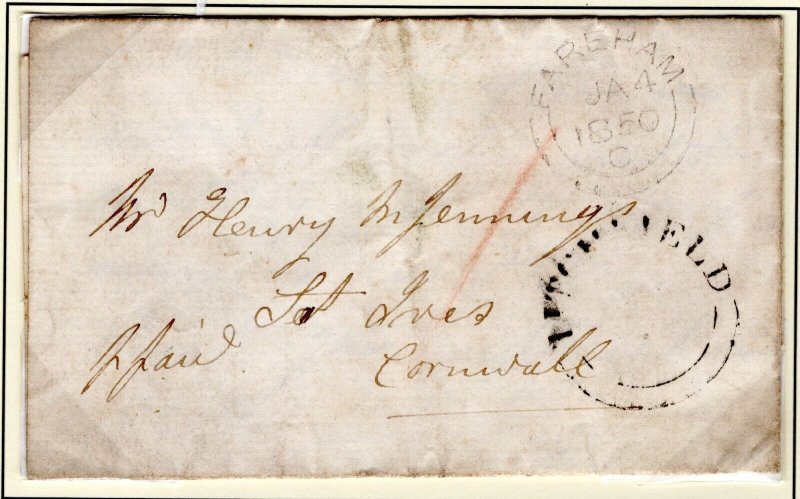 FAREHAM
JA 4
1850
C
Mr Henry M Jennings
St Ives
Paid
Cornwall